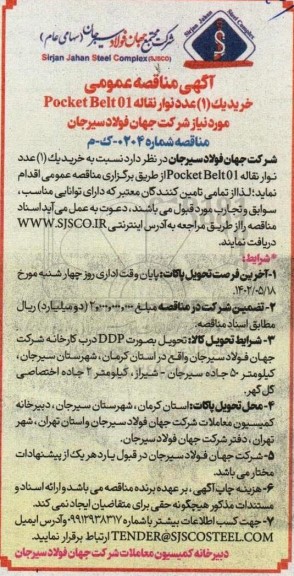 Sirjan Jahan
Steel Complex
SJSCO
شرکت مجتمع جهان فولاد سیرجان (سهامی عام)
Sirjan Jahan Steel Complex (SJSCO)
آگهی مناقصه عمومی
خرید یك (۱) عدد نوار نقاله Pocket Belt 01
مورد نیاز شرکت جهان فولاد سیرجان
مناقصه شماره ۰۲۰۴-ک-م
شرکت جهان فولاد سیرجان در نظر دارد نسبت به خرید یك (۱) عدد
نوار نقاله Pocket Belt 01 از طریق برگزاری مناقصه عمومی اقدام
نماید؛ لذا از تمامی تامین کنندگان معتبر که دارای توانایی مناسب،
سوابق و تجارب مورد قبول می باشند، دعوت به عمل می آید اسناد
مناقصه را از طریق مراجعه به آدرس اینترنتی WWW.SJSCO.IR
دریافت نمایند.
* شرایط:
۱- آخرین فرصت تحویل پاکات: پایان وقت اداری روز چهار شنبه مورخ
۱۴۰۲/۰۵/۱۸.
۲- تضمین شرکت در مناقصه مبلغ ۲,۰۰۰,۰۰۰,۰۰۰ (دو میلیارد) ریال
مطابق اسناد مناقصه.
۳- شرایط تحویل کالا: تحویل بصورت DDP درب کارخانه شرکت
جهان فولاد سیرجان واقع در استان کرمان، شهرستان سیرجان،
کیلومتر ۵۰ جاده سیرجان - شیراز، کیلومتر ۲ جاده اختصاصی
گل گهر.
۴- محل تحویل پاکات: استان کرمان، شهرستان سیرجان، دبیرخانه
کمیسیون معاملات شرکت جهان فولاد سیرجان و استان تهران، شهر
تهران، دفتر شرکت جهان فولاد سیرجان.
۵- شرکت جهان فولاد سیرجان در قبول یا رد هر یک از پیشنهادات
مختار می باشد.
۶- هزینه چاپ آگهی، بر عهده برنده مناقصه می باشد و ارائه اسناد و
مستندات مذکور هیچگونه حقی برای متقاضیان ایجاد نمی کند.
۷- جهت کسب اطلاعات بیشتر با شماره ۰۹۹۱۲۹۳۸۳۱۷ و آدرس ایمیل
TENDER@SJSCOSTEEL.COM ارتباط برقرار نمایید.
دبیرخانه کمیسیون معاملات شرکت جهان فولاد سیرجان